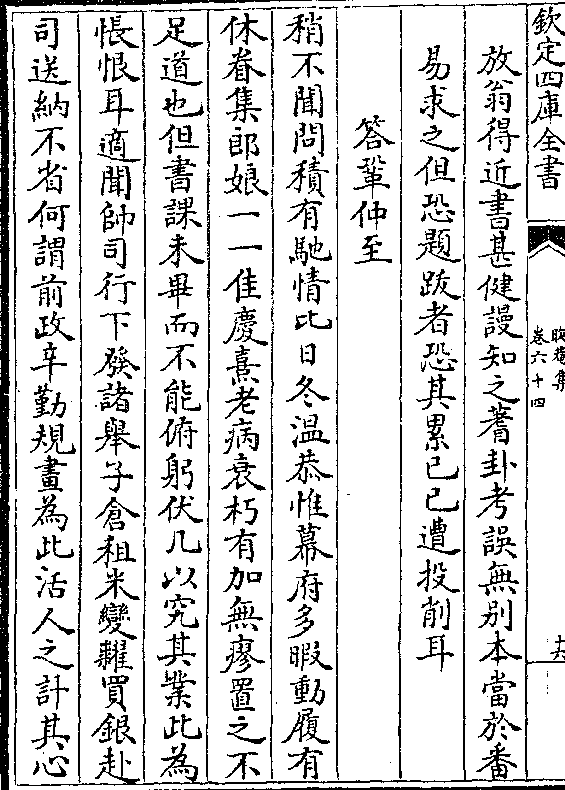 欽定四庫全書
晦菴集
卷六十四
十六
放翁得近書甚健謾知之蓍卦考誤無别本當於番
易求之但恐題跋者恐其累已已遭投削耳
答鞏仲至
稍不聞問積有馳情比日冬温恭惟幕府多暇動履有
休眷集郎娘一一佳慶熹老病衰朽有加無瘳置之不
足道也但書課未畢而不能俯躬伏几以究其業此為
悵恨耳適聞帥司行下發諸舉子倉租米變糶買銀赴
司送納不省何謂前政辛勤規畫為此活人之計其心